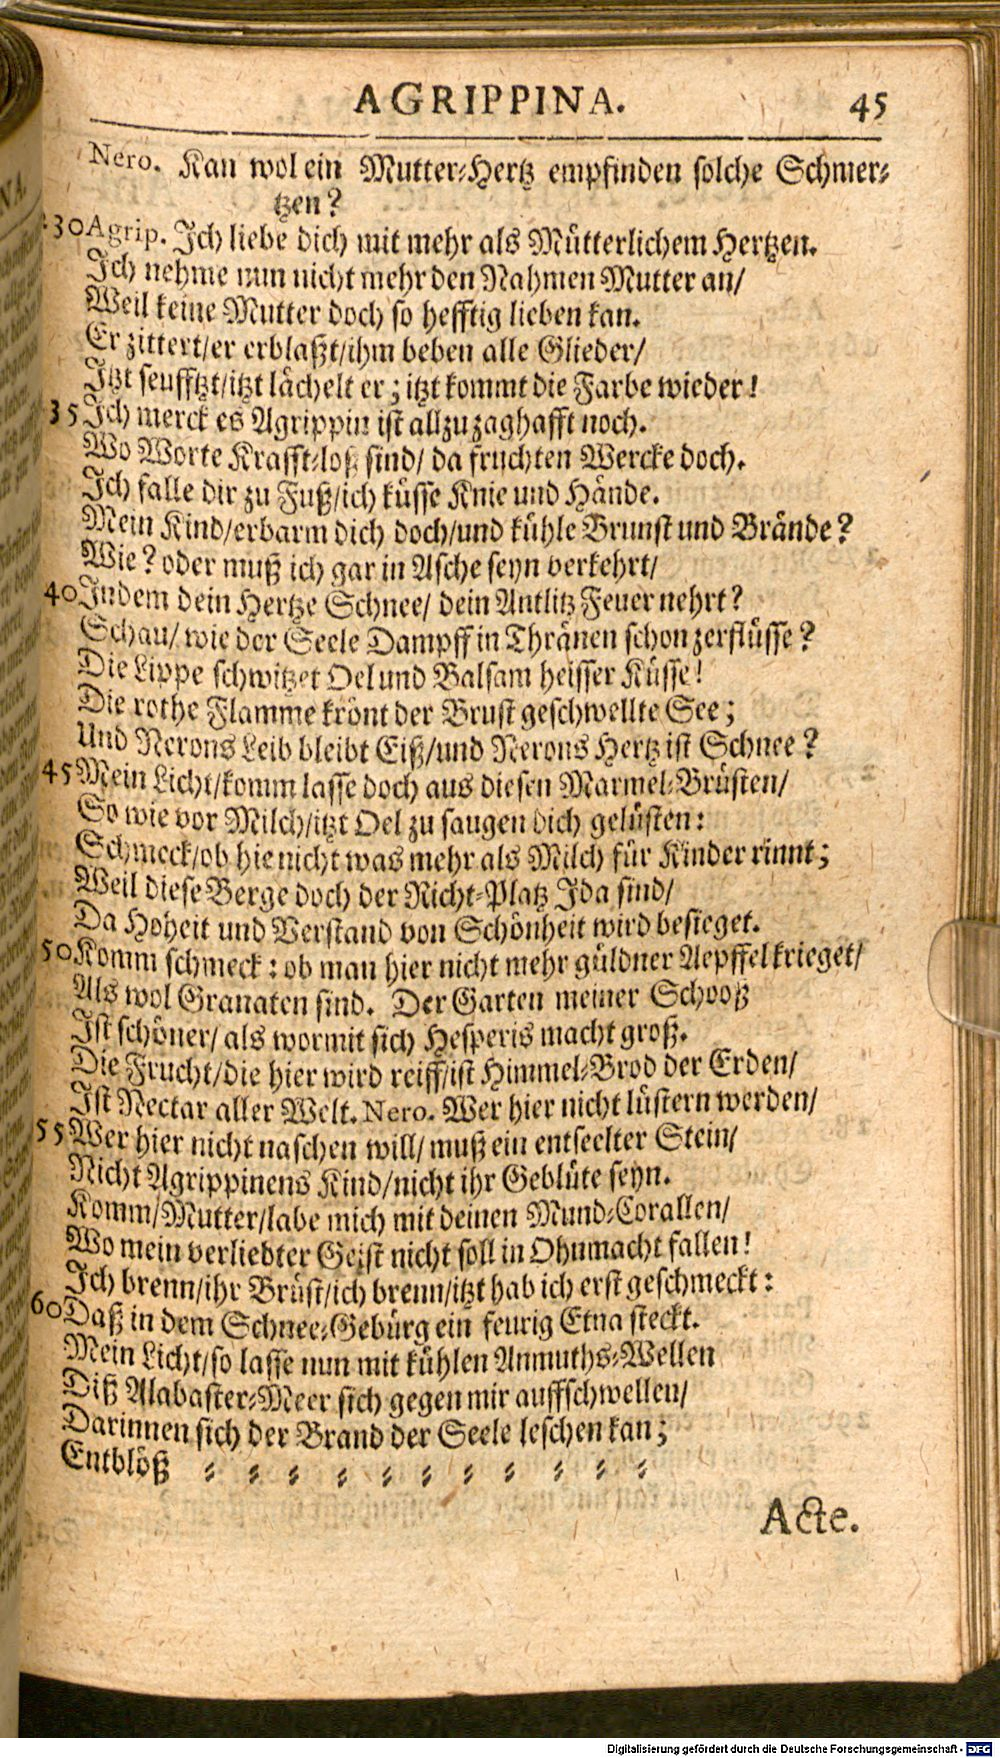 AGRIPPINA. 45
Nero. Kan wol ein Mutter-Hertz empfinden solche Schmer-
tzen?
30 Agrip. Ich liebe dich mit mehr als Mütterlichem Hertzen.
Ich nehme nun nicht mehr den Nahmen Mutter an/
Weil keine Mutter doch so hefftig lieben kan.
Er zittert/er erblaßt/ihm beben alle Glieder/
Itzt seufftzt/itzt lächelt er; itzt kommt die Farbe wieder!
35 Ich merck es Agrippin ist allzu zaghafft noch.
Wo Worte Krafft-loß sind/ da fruchten Wercke doch.
Ich falle dir zu Fuß/ich küsse Knie und Hände.
Mein Kind/erbarm dich doch/und kühle Brunst und Brände?
Wie? oder muß ich gar in Asche seyn verkehrt/
40 Indem dein Hertze Schnee/ dein Antlitz Feuer nehrt?
Schau/ wie der Seele Dampff in Thränen schon zerflüsse?
Die Lippe schwitzet Oel und Balsam heisser Küsse!
Die rothe Flamme krönt der Brust geschwellte See;
Und Nerons Leib bleibt Eiß/und Nerons Hertz ist Schnee?
45 Mein Licht/komm lasse doch aus diesen Marmel-Brüsten/
So wie vor Milch/itzt Oel zu saugen dich gelüsten:
Schmeck/ob hie nicht was mehr als Milch für Kinder rinnt;
Weil diese Berge doch der Richt-Platz Ida sind/
Da Hoheit und Verstand von Schönheit wird besieget.
50 Komm schmeck: ob man hier nicht mehr güldner Aepffel krieget/
Als wol Granaten sind. Der Garten meiner Schooß
Ist schöner/ als wormit sich Hesperis macht groß.
Die Frucht/die hier wird reiff/ist Himmel-Brod der Erden/
Ist Nectar aller Welt. Nero. Wer hier nicht lüstern werden/
55 Wer hier nicht naschen will/ muß ein entseelter Stein/
Nicht Agrippinens Kind/nicht ihr Geblüte seyn.
Komm/Mutter/labe mich mit deinen Mund-Corallen/
Wo mein verliebter Geist nicht soll in Ohnmacht fallen!
Ich brenn/ihr Brüst/ich brenn/itzt hab ich erst geschmeckt:
60 Daß in dem Schnee-Gebürg ein feurig Etna steckt.
Mein Licht/so lasse nun mit kühlen Anmuths-Wellen
Diß Alabaster-Meer sich gegen mir auffschwellen/
Darinnen sich der Brand der Seele leschen kan;
Entblöß - - - - - - - - - - -
Acte.
Digitalisierung gefördert durch die Deutsche Forschungsgemeinschaft - DFG